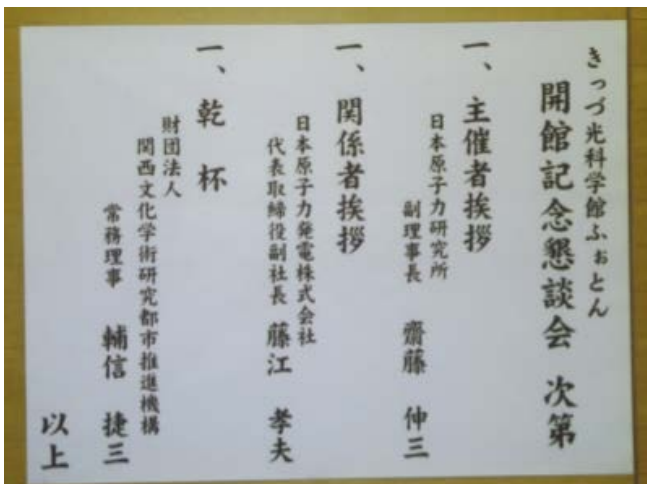 きっづ光科学館ふぉとん
開館記念懇談会 次第
一、主催者挨拶
日本原子力研究所
副理事長 齋藤 伸三
一、関係者挨拶
日本原子力発電株式会社
代表取締役副社長 藤江 孝夫
一、乾 杯
財団法人
関西文化学術研究都市推進機構
常務理事 輔信 捷三
以上